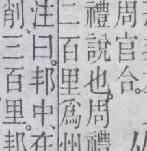 周官合。
禮說也。周禮
二百里爲州
注曰。邦中在
削三百里。邦